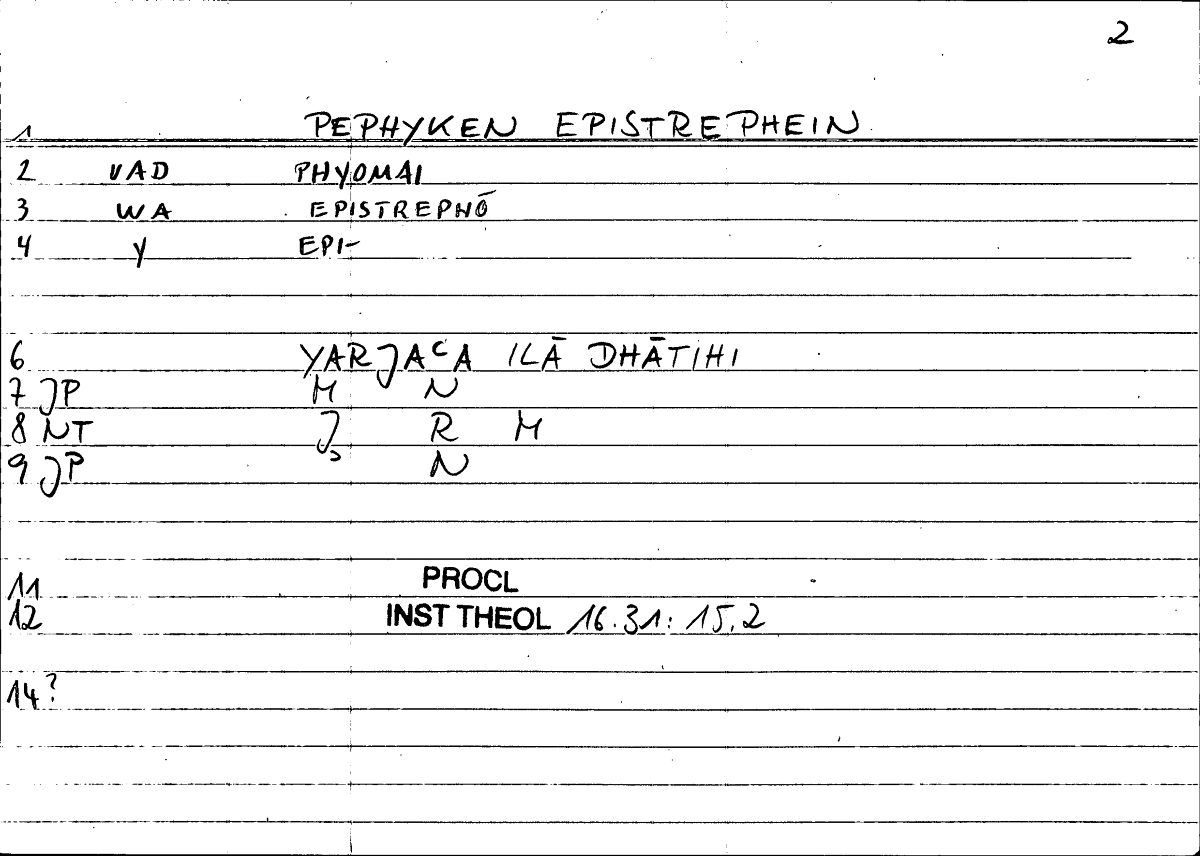 2
1 PEPHYKEN EPISTREPHEIN
2 VAD PHYOMAI
3 WA EPISTREPHŌ
4 Y EPI-
6 YARJAʿA ILĀ DHĀTIHI
7 JP M N
8 NT J R M
9 JP N
11 PROCL
12 INST THEOL 16.31: 15,2
14?